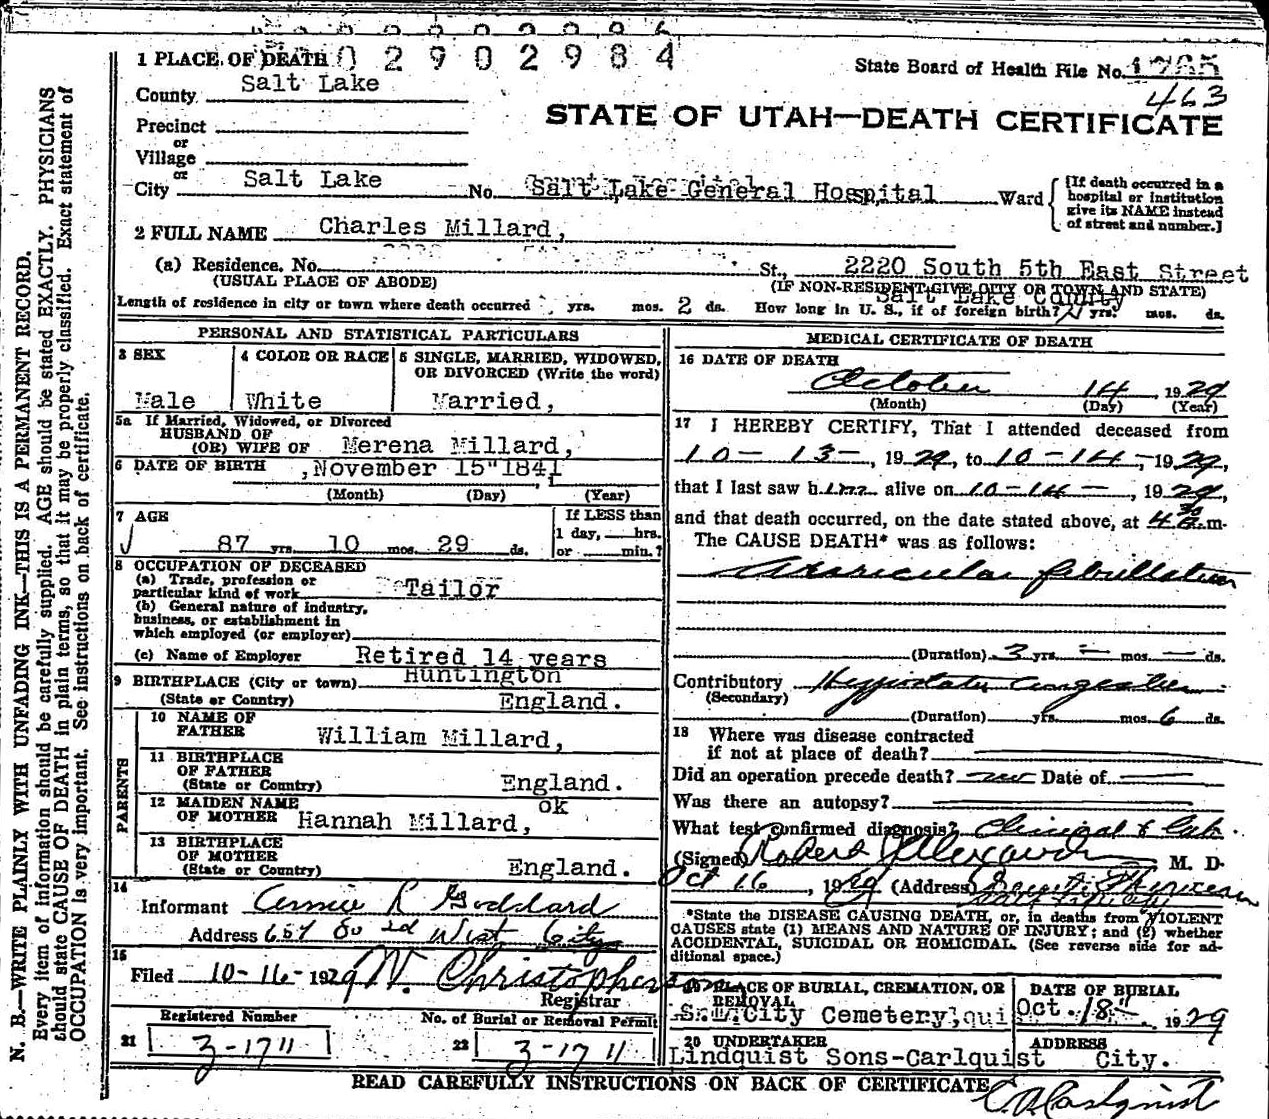 02902984
1 PLACE OF DEATH
State Board of Health File No. 1785
463
County Salt Lake
STATE OF UTAH—DEATH CERTIFICATE
Precinct
or
Village
or
City Salt Lake No. Salt Lake General Hospital Ward
[If death occurred in a hospital or institution give its NAME instead of street and number.]
2 FULL NAME Charles Millard,
(a) Residence. No. St., 2220 South 5th East Street
(USUAL PLACE OF ABODE) (IF NON-RESIDENT GIVE CITY OR TOWN AND STATE)
Salt Lake County
Length of residence in city or town where death occurred yrs. mos. 2 ds. How long in U. S., if of foreign birth? yrs. mos. ds.
PERSONAL AND STATISTICAL PARTICULARS
3 SEX
Male
4 COLOR OR RACE
White
5 SINGLE, MARRIED, WIDOWED, OR DIVORCED (Write the word)
Married,
5a If Married, Widowed, or Divorced
HUSBAND OF
(OR) WIFE OF Merena Millard,
6 DATE OF BIRTH , November 15" 1841
(Month) (Day) (Year)
7 AGE
87 yrs. 10 mos. 29 ds.
If LESS than
1 day, hrs.
or min.?
8 OCCUPATION OF DECEASED
(a) Trade, profession or
particular kind of work Tailor
(b) General nature of industry,
business, or establishment in
which employed (or employer)
(c) Name of Employer Retired 14 years
9 BIRTHPLACE (City or town) Huntington
(State or Country) England.
PARENTS
10 NAME OF
FATHER William Millard,
11 BIRTHPLACE
OF FATHER
(State or Country) England.
ok
12 MAIDEN NAME
OF MOTHER Hannah Millard,
13 BIRTHPLACE
OF MOTHER
(State or Country) England.
14
Informant Annie R Goddard
Address 657 So 2d West City
15
Filed 10-16-1929 N. Christopherson
Registrar
Registered Number
No. of Burial or Removal Permit
21 3-1711
22 3-1711
MEDICAL CERTIFICATE OF DEATH
16 DATE OF DEATH
October 14, 1929
(Month) (Day) (Year)
17 I HEREBY CERTIFY, That I attended deceased from
10-13-, 1929, to 10-14-, 1929,
that I last saw him alive on 10-14-, 1929,
and that death occurred, on the date stated above, at 4 30 m.
The CAUSE DEATH* was as follows:
Auricular fibrillation
(Duration) 3 yrs. — mos. — ds.
Contributory Hypostatic congestion
(Secondary)
(Duration) yrs. mos. 6 ds.
18 Where was disease contracted
if not at place of death?
Did an operation precede death? no Date of
Was there an autopsy?
What test confirmed diagnosis? Clinical & Lab.
(Signed) Robert J Alexander M. D.
Oct 16, 1929 (Address)
*State the DISEASE CAUSING DEATH, or, in deaths from VIOLENT
CAUSES state (1) MEANS AND NATURE OF INJURY; and (2) whether
ACCIDENTAL, SUICIDAL OR HOMICIDAL. (See reverse side for ad-
ditional space.)
PLACE OF BURIAL, CREMATION, OR
REMOVAL
City Cemetery,
DATE OF BURIAL
Oct. 18" 1929
20 UNDERTAKER
Lindquist Sons-Carlquist
ADDRESS
City.
READ CAREFULLY INSTRUCTIONS ON BACK OF CERTIFICATE
C. A. Carlquist
N. B.—WRITE PLAINLY WITH UNFADING INK—THIS IS A PERMANENT RECORD.
Every item of information should be carefully supplied. AGE should be stated EXACTLY. PHYSICIANS
should state CAUSE OF DEATH in plain terms, so that it may be properly classified. Exact statement of
OCCUPATION is very important. See instructions on back of certificate.